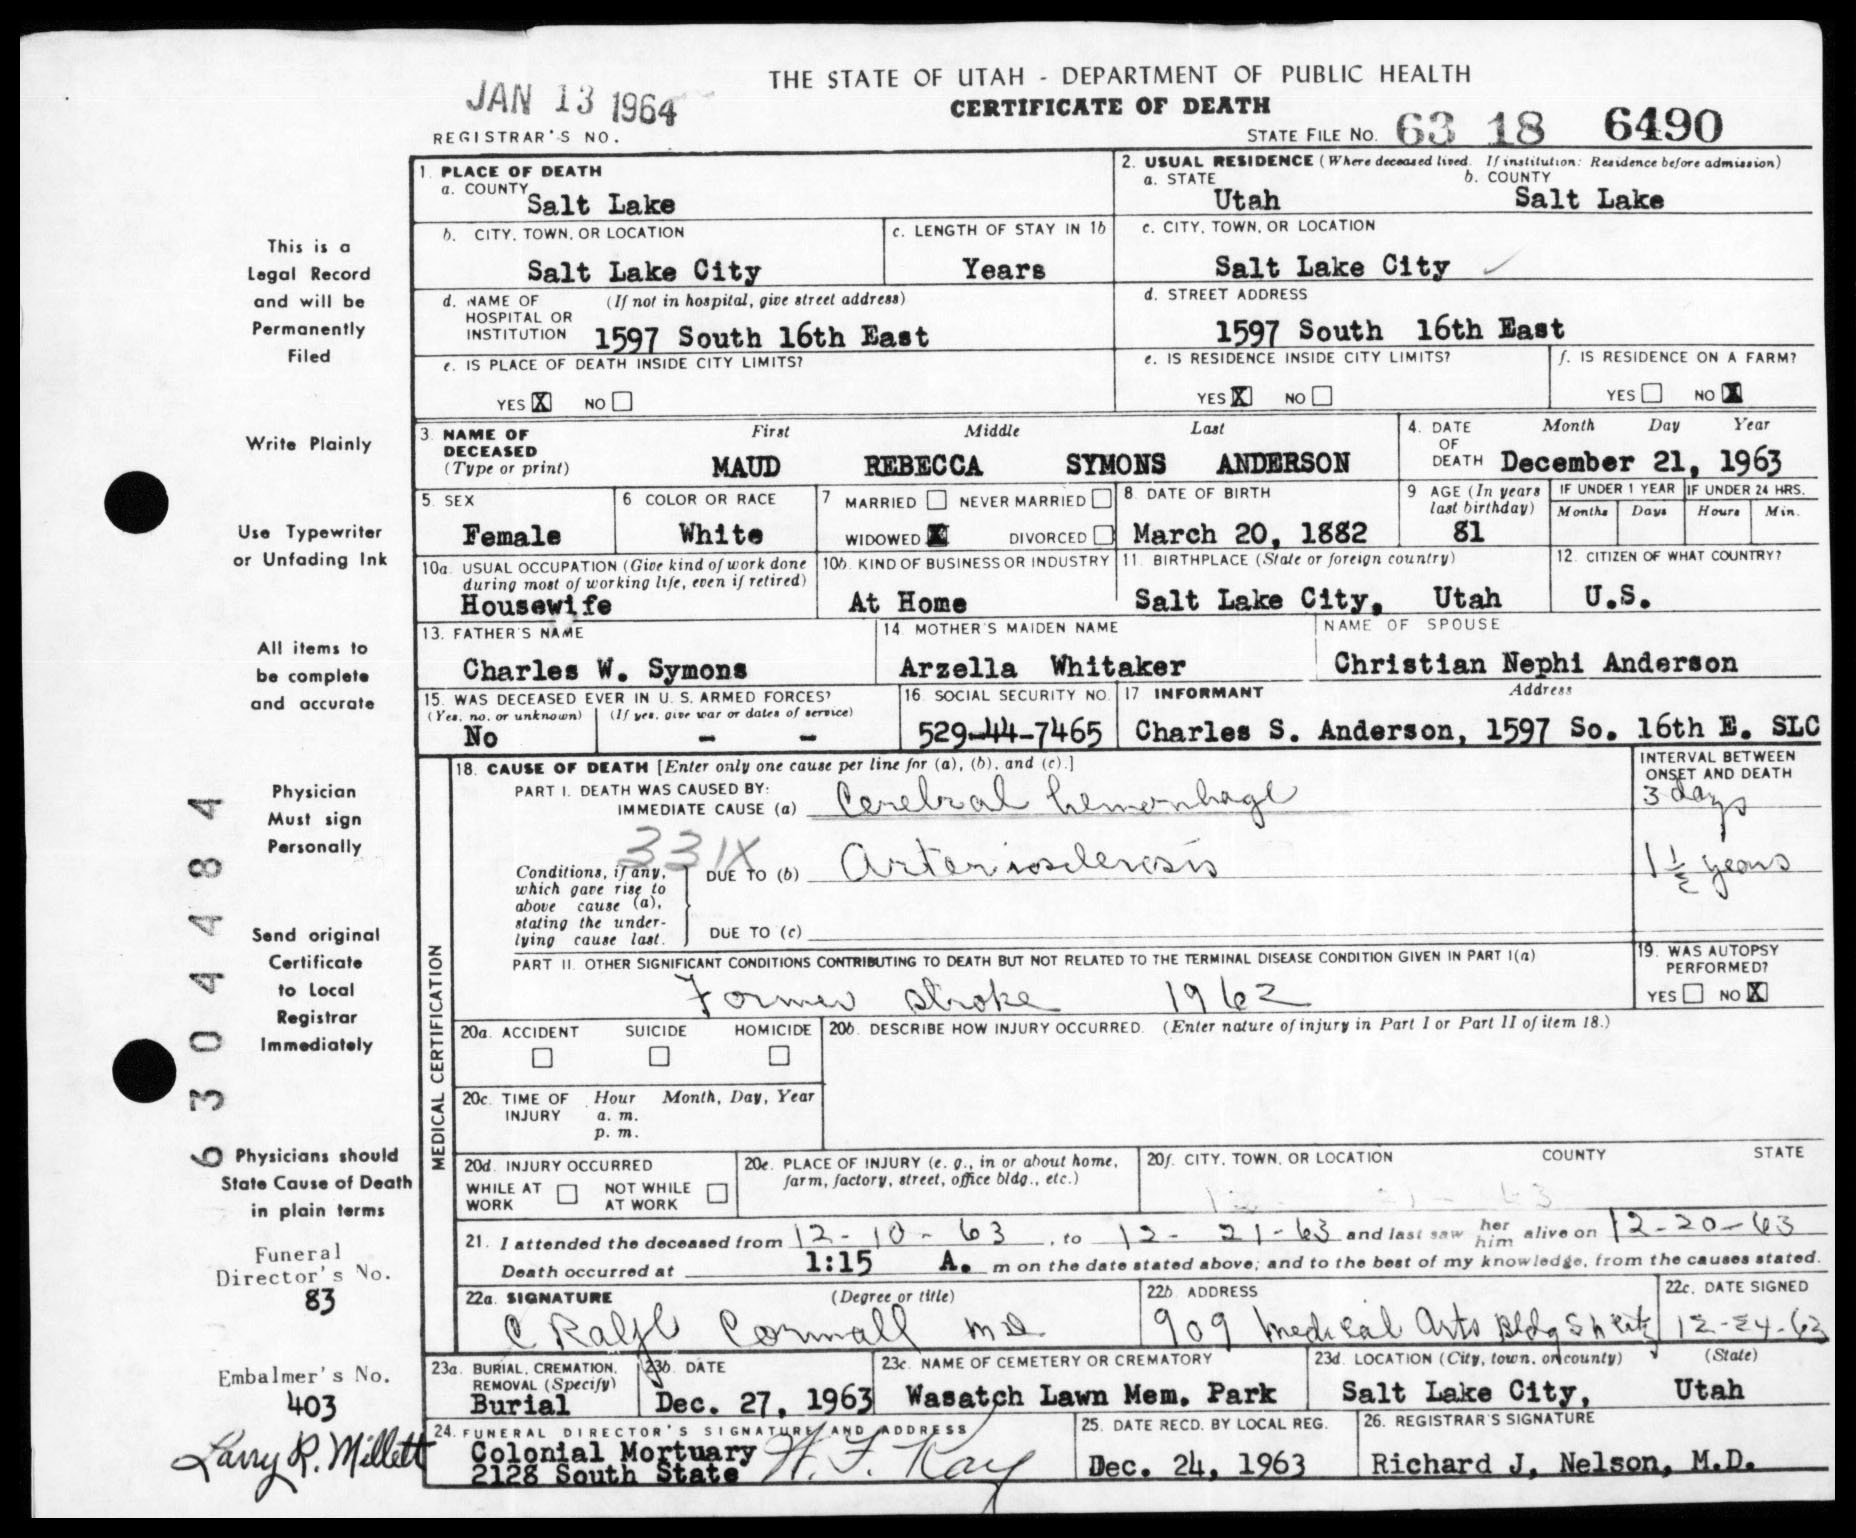 THE STATE OF UTAH - DEPARTMENT OF PUBLIC HEALTH
CERTIFICATE OF DEATH
JAN 13 1964
REGISTRAR'S NO.
STATE FILE NO. 63 18 6490
1. PLACE OF DEATH
a. COUNTY
Salt Lake
2. USUAL RESIDENCE (Where deceased lived. If institution: Residence before admission)
a. STATE b. COUNTY
Utah Salt Lake
b. CITY, TOWN, OR LOCATION
Salt Lake City
c. LENGTH OF STAY IN 1b
Years
c. CITY, TOWN, OR LOCATION
Salt Lake City
d. NAME OF (If not in hospital, give street address)
HOSPITAL OR
INSTITUTION 1597 South 16th East
d. STREET ADDRESS
1597 South 16th East
e. IS PLACE OF DEATH INSIDE CITY LIMITS?
YES X NO
e. IS RESIDENCE INSIDE CITY LIMITS?
YES X NO
f. IS RESIDENCE ON A FARM?
YES NO X
3. NAME OF DECEASED (Type or print)
First Middle Last
MAUD REBECCA SYMONS ANDERSON
4. DATE OF DEATH
Month Day Year
December 21, 1963
5. SEX
Female
6 COLOR OR RACE
White
7 MARRIED NEVER MARRIED
WIDOWED X DIVORCED
8. DATE OF BIRTH
March 20, 1882
9 AGE (In years last birthday)
81
IF UNDER 1 YEAR
Months Days
IF UNDER 24 HRS.
Hours Min.
10a. USUAL OCCUPATION (Give kind of work done
during most of working life, even if retired)
Housewife
10b. KIND OF BUSINESS OR INDUSTRY
At Home
11. BIRTHPLACE (State or foreign country)
Salt Lake City, Utah
12. CITIZEN OF WHAT COUNTRY?
U.S.
13. FATHER'S NAME
Charles W. Symons
14. MOTHER'S MAIDEN NAME
Arzella Whitaker
NAME OF SPOUSE
Christian Nephi Anderson
15. WAS DECEASED EVER IN U. S. ARMED FORCES?
(Yes, no, or unknown) (If yes, give war or dates of service)
No - -
16. SOCIAL SECURITY NO.
529-44-7465
17 INFORMANT Address
Charles S. Anderson, 1597 So. 16th E. SLC
MEDICAL CERTIFICATION
18. CAUSE OF DEATH [Enter only one cause per line for (a), (b), and (c).]
INTERVAL BETWEEN
ONSET AND DEATH
PART I. DEATH WAS CAUSED BY:
IMMEDIATE CAUSE (a) Cerebral hemorrhage
3 days
331X
Conditions, if any,
which gave rise to
above cause (a),
stating the under-
lying cause last.
DUE TO (b) Arteriosclerosis
1 1/2 years
DUE TO (c)
PART II. OTHER SIGNIFICANT CONDITIONS CONTRIBUTING TO DEATH BUT NOT RELATED TO THE TERMINAL DISEASE CONDITION GIVEN IN PART I(a)
Former stroke 1962
19. WAS AUTOPSY
PERFORMED?
YES NO X
20a. ACCIDENT SUICIDE HOMICIDE
20b. DESCRIBE HOW INJURY OCCURRED. (Enter nature of injury in Part I or Part II of item 18.)
20c. TIME OF INJURY
Hour Month, Day, Year
a. m.
p. m.
20d. INJURY OCCURRED
WHILE AT WORK NOT WHILE AT WORK
20e. PLACE OF INJURY (e. g., in or about home,
farm, factory, street, office bldg., etc.)
20f. CITY, TOWN, OR LOCATION COUNTY STATE
21. I attended the deceased from 12-10-63, to 12-21-63 and last saw her him alive on 12-20-63
Death occurred at 1:15 A. m on the date stated above; and to the best of my knowledge, from the causes stated.
22a. SIGNATURE (Degree or title)
C Ralph Cornwall MD
22b. ADDRESS
909 Medical Arts Bldg
22c. DATE SIGNED
12-24-63
23a. BURIAL, CREMATION,
REMOVAL (Specify)
Burial
23b. DATE
Dec. 27, 1963
23c. NAME OF CEMETERY OR CREMATORY
Wasatch Lawn Mem. Park
23d. LOCATION (City, town, or county) (State)
Salt Lake City, Utah
24. FUNERAL DIRECTOR'S SIGNATURE AND ADDRESS
Colonial Mortuary
2128 South State
W. F. Kay
25. DATE RECD. BY LOCAL REG.
Dec. 24, 1963
26. REGISTRAR'S SIGNATURE
Richard J. Nelson, M.D.
This is a
Legal Record
and will be
Permanently
Filed
Write Plainly
Use Typewriter
or Unfading Ink
All items to
be complete
and accurate
Physician
Must sign
Personally
Send original
Certificate
to Local
Registrar
Immediately
Physicians should
State Cause of Death
in plain terms
6304484
Funeral
Director's No.
83
Embalmer's No.
403
Larry R. Millett